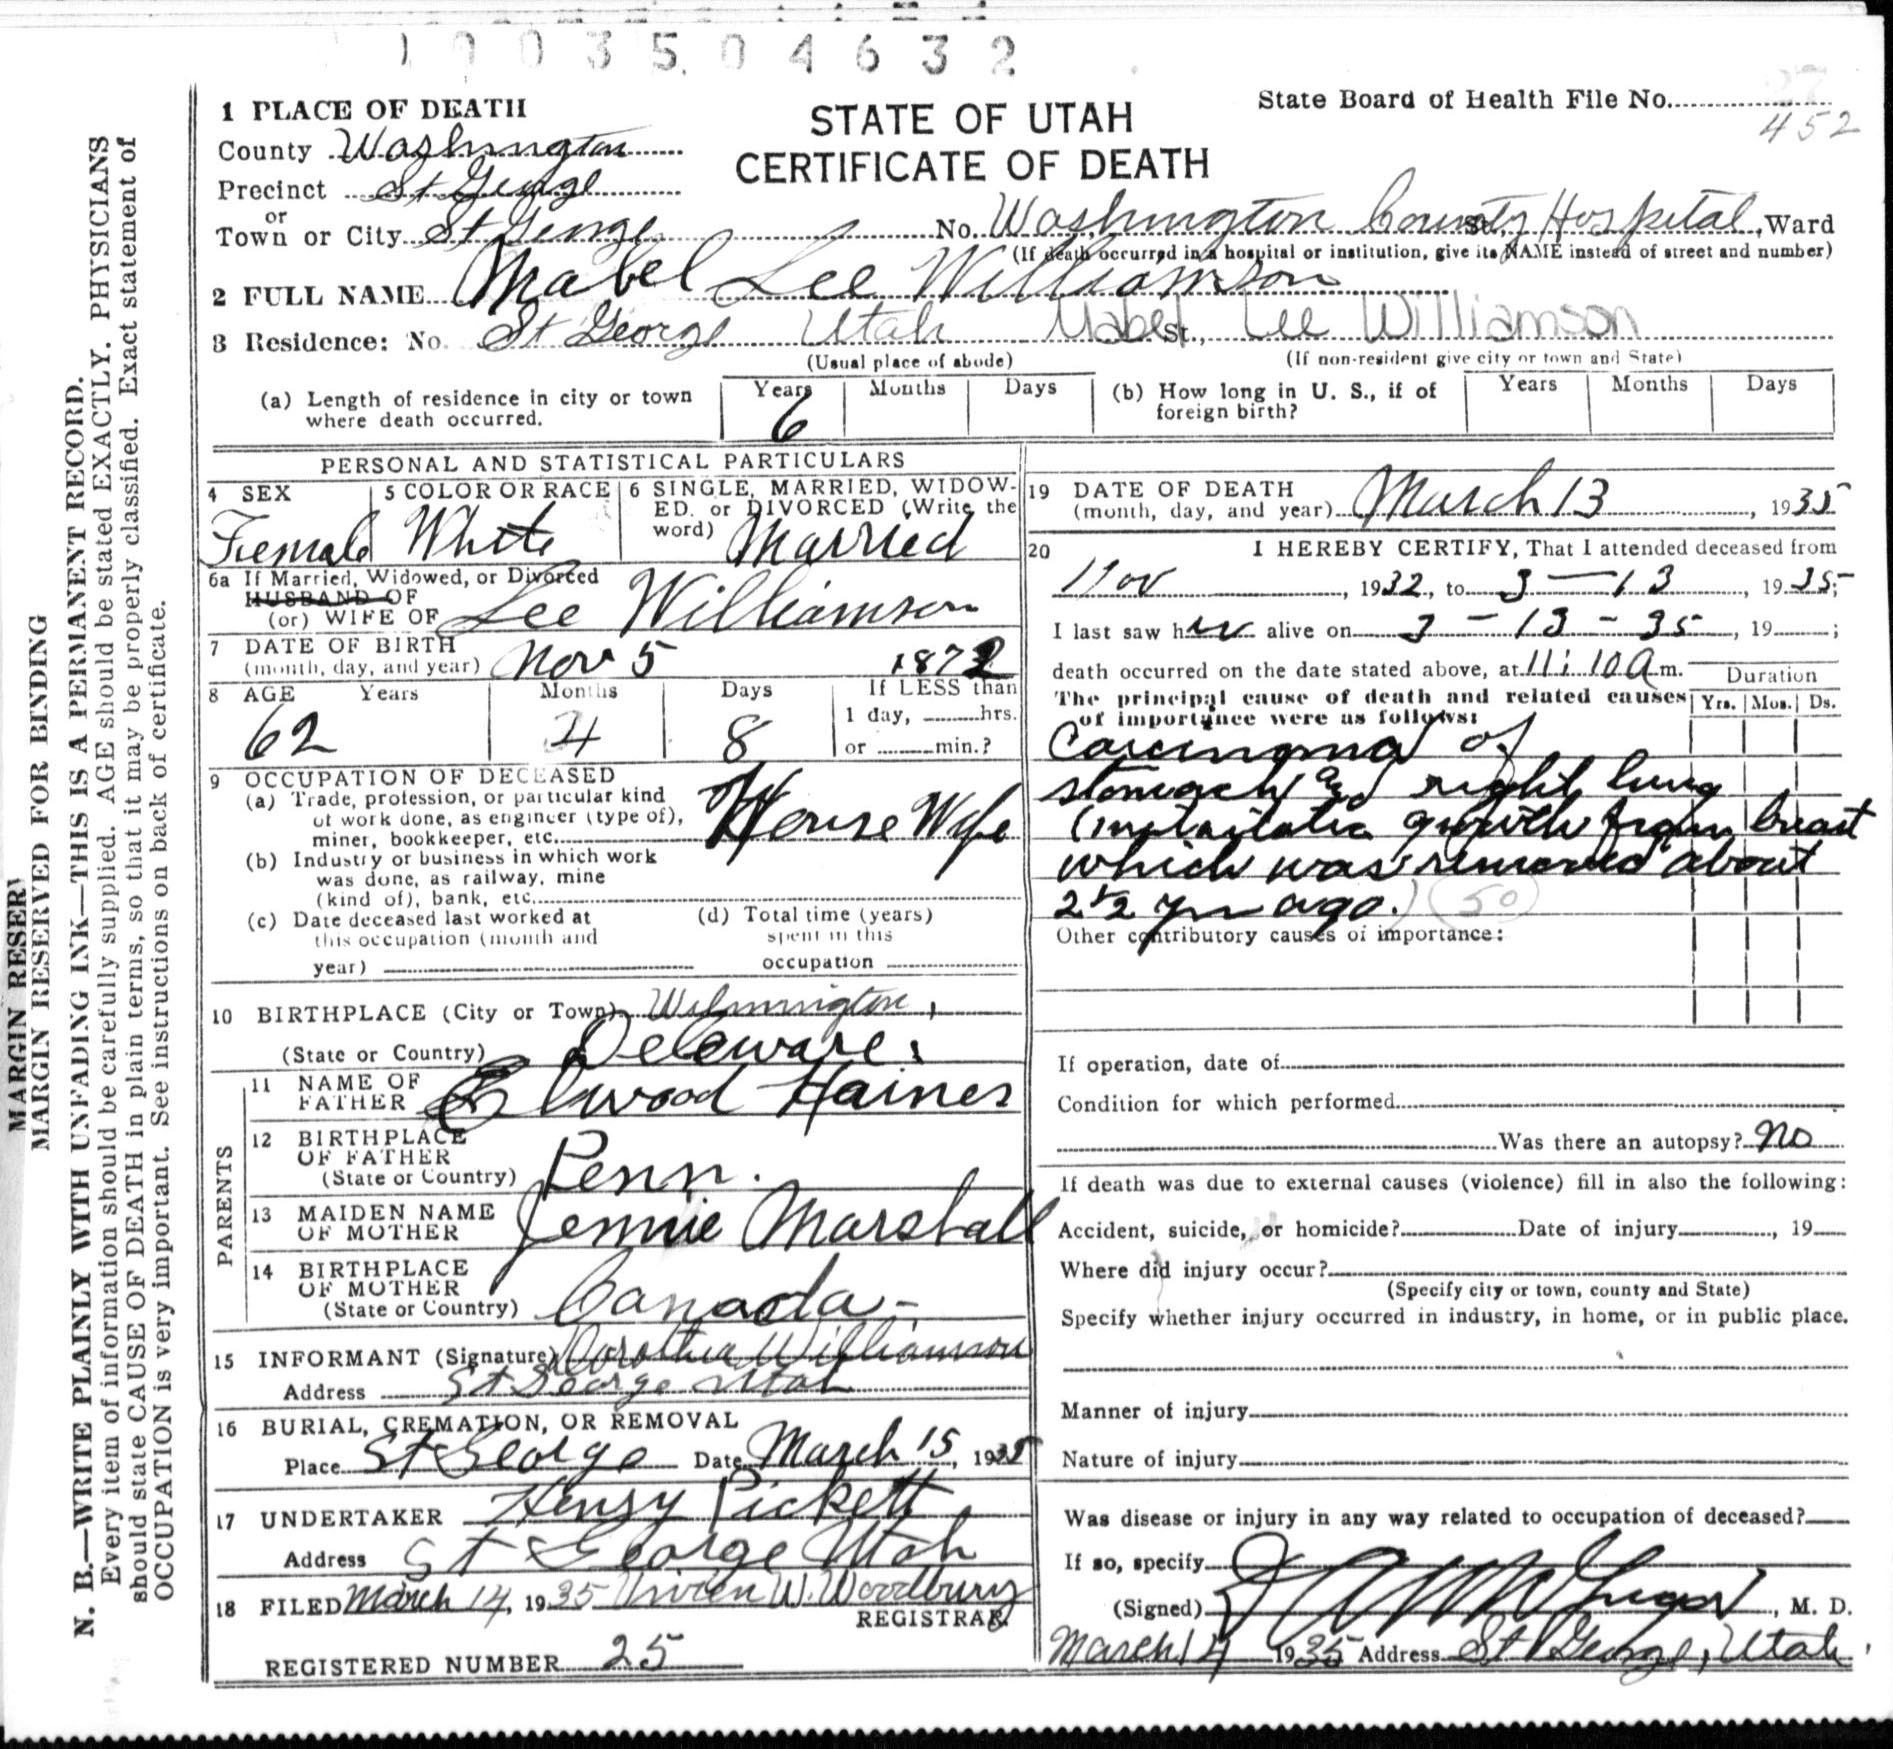 1 0 0 3 5 0 4 6 3 2
1 PLACE OF DEATH
County Washington
Precinct St George
or
Town or City St George No. Washington County Hospital St., Ward
(If death occurred in a hospital or institution, give its NAME instead of street and number)
STATE OF UTAH
CERTIFICATE OF DEATH
State Board of Health File No. 27
452
2 FULL NAME Mabel Lee Williamson
3 Residence: No. St George Utah Mabel St., Lee Williamson
(Usual place of abode) (If non-resident give city or town and State)
(a) Length of residence in city or town where death occurred. Years 6 Months Days
(b) How long in U. S., if of foreign birth? Years Months Days
PERSONAL AND STATISTICAL PARTICULARS
4 SEX Female
5 COLOR OR RACE White
6 SINGLE, MARRIED, WIDOW-
ED. or DIVORCED (Write the
word) Married
6a If Married, Widowed, or Divorced
HUSBAND OF
(or) WIFE OF Lee Williamson
7 DATE OF BIRTH
(month, day, and year) Nov 5 1872
8 AGE Years 62 Months 4 Days 8
If LESS than
1 day, hrs.
or min.?
9 OCCUPATION OF DECEASED
(a) Trade, profession, or particular kind
of work done, as engineer (type of),
miner, bookkeeper, etc. House Wife
(b) Industry or business in which work
was done, as railway, mine
(kind of), bank, etc.
(c) Date deceased last worked at
this occupation (month and
year)
(d) Total time (years)
spent in this
occupation
10 BIRTHPLACE (City or Town) Wilmington,
(State or Country) Deleware.
PARENTS
11 NAME OF
FATHER Elwood Haines
12 BIRTHPLACE
OF FATHER
(State or Country) Penn.
13 MAIDEN NAME
OF MOTHER Jennie Marshall
14 BIRTHPLACE
OF MOTHER
(State or Country) Canada-
15 INFORMANT (Signature) Dorothea Williamson
Address St George Utah
16 BURIAL, CREMATION, OR REMOVAL
Place St George Date March 15, 1935
17 UNDERTAKER Henry Pickett
Address St George Utah
18 FILED March 14, 1935 Vivien W. Woodbury
REGISTRAR
REGISTERED NUMBER 25
19 DATE OF DEATH
(month, day, and year) March 13, 1935
20 I HEREBY CERTIFY, That I attended deceased from
Nov, 1932, to 3-13, 1935;
I last saw her alive on 3-13-35, 19;
death occurred on the date stated above, at 11:10 a m.
Duration
Yrs. Mos. Ds.
The principal cause of death and related causes
of importance were as follows:
Carcinoma of
stomach and right lung
(metastatic growth from breast
which was removed about
2½ yrs ago.) (50)
Other contributory causes of importance:
If operation, date of
Condition for which performed
Was there an autopsy? no
If death was due to external causes (violence) fill in also the following:
Accident, suicide, or homicide? Date of injury, 19
Where did injury occur?
(Specify city or town, county and State)
Specify whether injury occurred in industry, in home, or in public place.
Manner of injury
Nature of injury
Was disease or injury in any way related to occupation of deceased?
If so, specify
(Signed), M. D.
March 14 1935 Address St George, Utah.
MARGIN RESERV
MARGIN RESERVED FOR BINDING
N. B.—WRITE PLAINLY WITH UNFADING INK—THIS IS A PERMANENT RECORD.
Every item of information should be carefully supplied. AGE should be stated EXACTLY. PHYSICIANS
should state CAUSE OF DEATH in plain terms, so that it may be properly classified. Exact statement of
OCCUPATION is very important. See instructions on back of certificate.